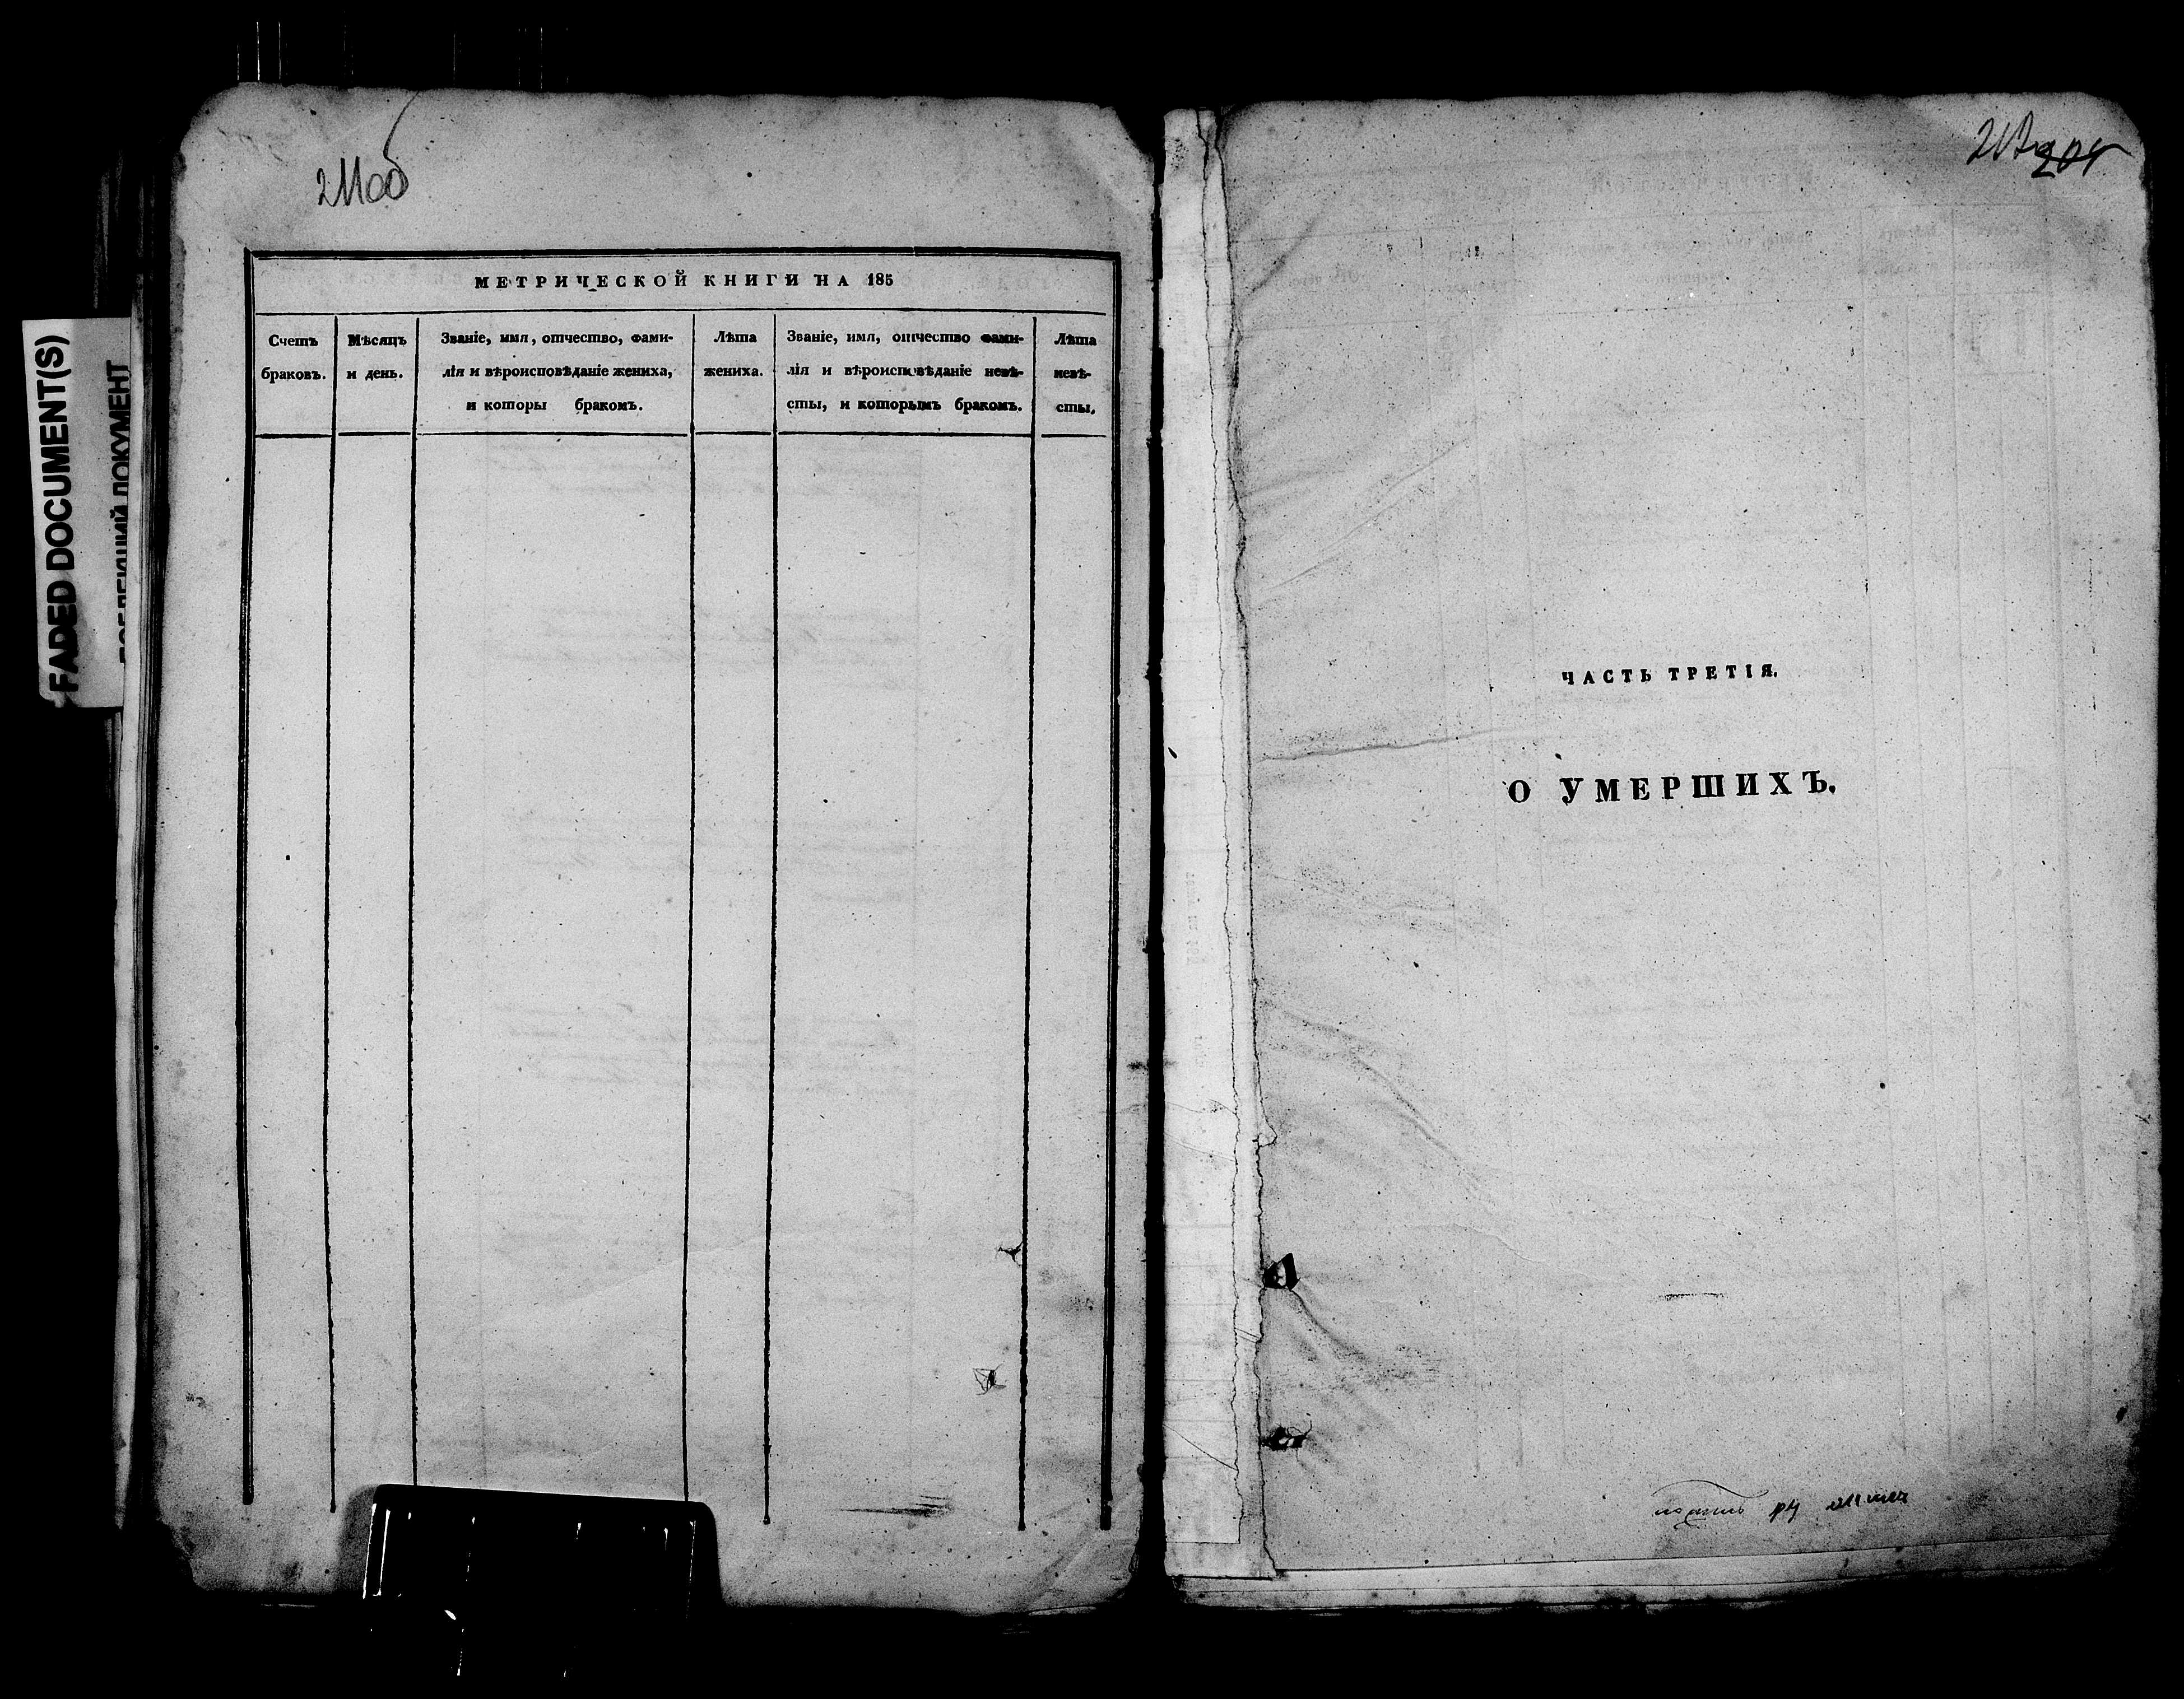 FADED DOCUMENT(S)
211об
МЕТРИЧЕСКОЙ КНИГИ НА 185
Счетъ
браковъ.
Мѣсяцъ
и день.
Званіе, имя, отчество, фами-
лія и вѣроисповѣданіе жениха,
и которы бракомъ.
Лѣта
жениха.
Званіе, имя, отчество фами-
лія и вѣроисповѣданіе невѣ-
сты, и которымъ бракомъ.
Лѣта
невѣ-
сты.
212
ЧАСТЬ ТРЕТІЯ.
О УМЕРШИХЪ.